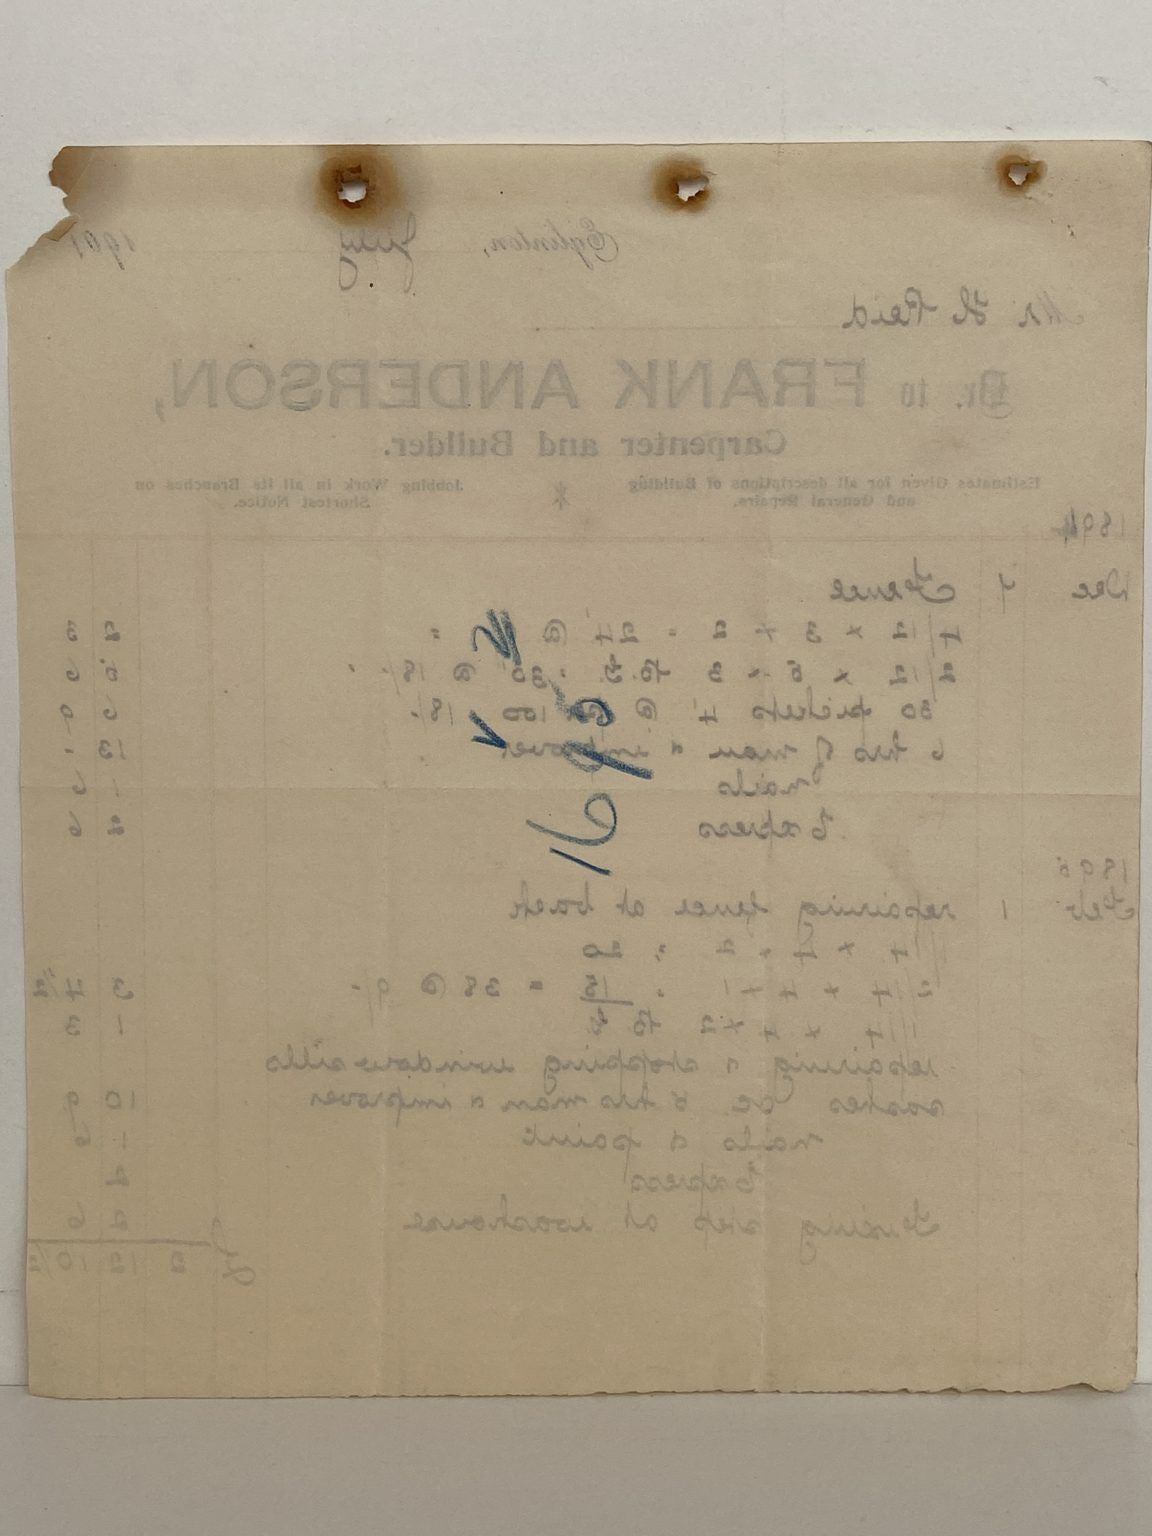 Eglinton, July 1901
Mr H Reid
Dr. to FRANK ANDERSON,
Carpenter and Builder.
Estimates Given for all descriptions of Building and General Repairs.
Jobbing Work in all its Branches on Shortest Notice.
1894
Dec 7 Fence
4/12 x 3 x 2 = 24 @ = 2 3
2/12 x 5 x 3 = 30 @ 18/-
30 pickets 4 @ 100 18/- 9
6 hrs of man & improver 13 -
nails 1 6
Express 2 6
1895
Feb 1 repairing fence at back
1/4 x 4 x 2 = 20
2/14 x 4 x 1 = 18 = 38 @ 9/- 3 4 1/2
1/14 x 4 x 2 1 3
repairing & stopping window sills
sashes &c 5 hrs man & improver 10 9
nails & paint 1 6
Express 2
Fixing step at washouse 2 6
£ 2 12 10 1/2
16/95